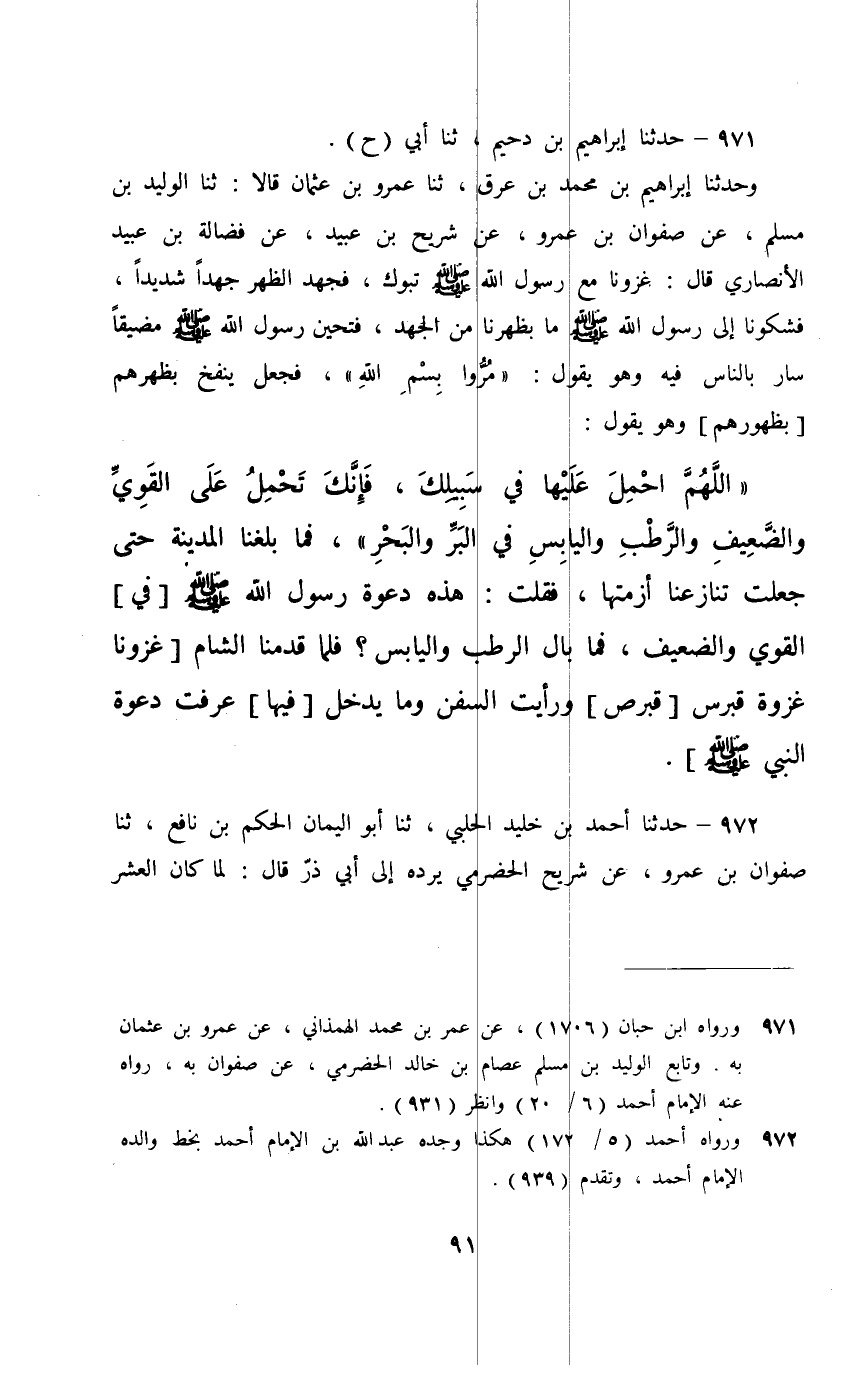 ٩٧١ – حدثنا إبراهيم بن دحيم ، ثنا أبي (ح) .
وحدثنا إبراهيم بن محمد بن عرق ، ثنا عمرو بن عثمان قالا : ثنا الوليد بن
مسلم ، عن صفوان بن عمرو ، عن شريح بن عبيد ، عن فضالة بن عبيد
الأنصاري قال : غزونا مع رسول الله ﷺ تبوك ، فجهد الظهر جهداً شديداً ،
فشكونا إلى رسول الله ﷺ ما بظهرنا من الجهد ، فتحين رسول الله ﷺ مضيقاً
سار بالناس فيه وهو يقول : « مُرُّوا بِسْمِ اللهِ » ، فجعل ينفخ بظهرهم
[ بظهورهم ] وهو يقول :
« اللَّهُمَّ احْمِلَ عَلَيْها في سَبِيلِكَ ، فَإِنَّكَ تَحْمِلُ عَلَى القَوِيِّ
والضَّعِيفِ والرَّطْبِ واليابِسِ في البَرِّ والبَحْرِ » ، فما بلغنا المدينة حتى
جعلت تنازعنا أزمتها ، فقلت : هذه دعوة رسول الله ﷺ [ في ]
القوي والضعيف ، فما بال الرطب واليابس ؟ فلما قدمنا الشام [ غزونا
غزوة قبرس [ قبرص ] ورأيت السفن وما يدخل [ فيها ] عرفت دعوة
النبي ﷺ ] .
٩٧٢ – حدثنا أحمد بن خليد الحلبي ، ثنا أبو اليمان الحكم بن نافع ، ثنا
صفوان بن عمرو ، عن شريح الحضرمي يرده إلى أبي ذرّ قال : لما كان العشر
٩٧١ ورواه ابن حبان (١٧٠٦) ، عن عمر بن محمد الهمذاني ، عن عمرو بن عثمان
به . وتابع الوليد بن مسلم عصام بن خالد الحضرمي ، عن صفوان به ، رواه
عنه الإمام أحمد (٦/ ٢٠) وانظر (٩٣١) .
٩٧٢ ورواه أحمد (٥/ ١٧٢) هكذا وجده عبد الله بن الإمام أحمد بخط والده
الإمام أحمد ، وتقدم (٩٣٩) .
٩١